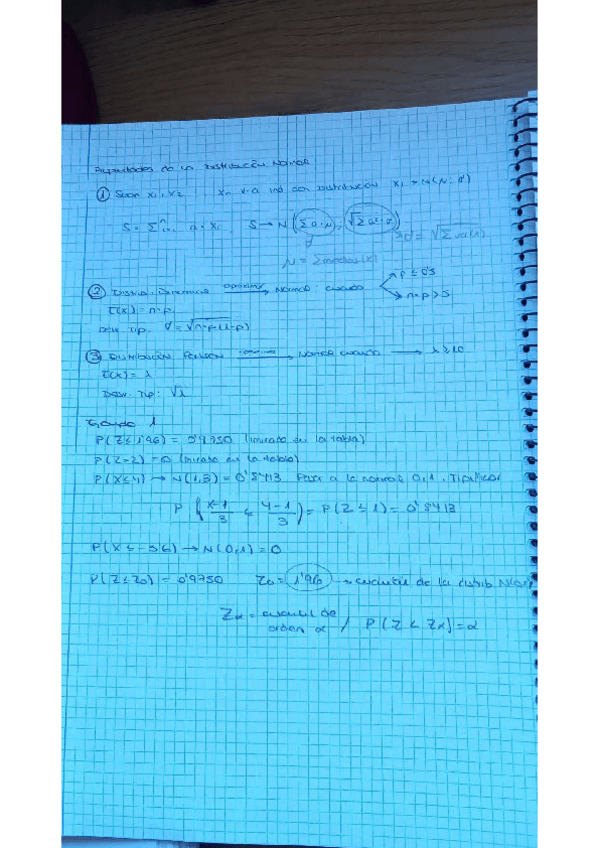 Propiedades de la distribución Normal
① Sean x₁, x₂ ... xₙ v.a ind con Distribución xᵢ → N(μ, σ)
S = Σⁿᵢ₌₁ aᵢ·xᵢ S → N(Σa·μ, √Σa²·σ²)
σ = √Σvar(x)
μ = Σmedias(x)
② Distrib. Binomial aproxima → Normal cuando → p ≤ 0'5
→ n·p > 5
E(x) = n·p
Desv. Tip. σ = √n·p(1-p)
③ Distribución Poisson → Normal cuando → λ ≥ 10
E(x) = λ
Desv. Tip: √λ
1
P(Z ≤ 1'96) = 0'9750 (mirado en la tabla)
P(Z=2) = 0 (mirado en la tabla)
P(X ≤ 4) → N(1,3) = 0'8413 Pasa a la normal 0,1. Tipificar
P (x-1/3 ≤ 4-1/3) = P(Z ≤ 1) = 0'8413
P(X ≤ -5'6) → N(0,1) = 0
P(Z ≤ Z₀) = 0'9750 Z₀ = 1'96 → cuantil de la distrib N(0,1)
Zα = cuantil de
orden α / P(Z ≤ Zα) = α